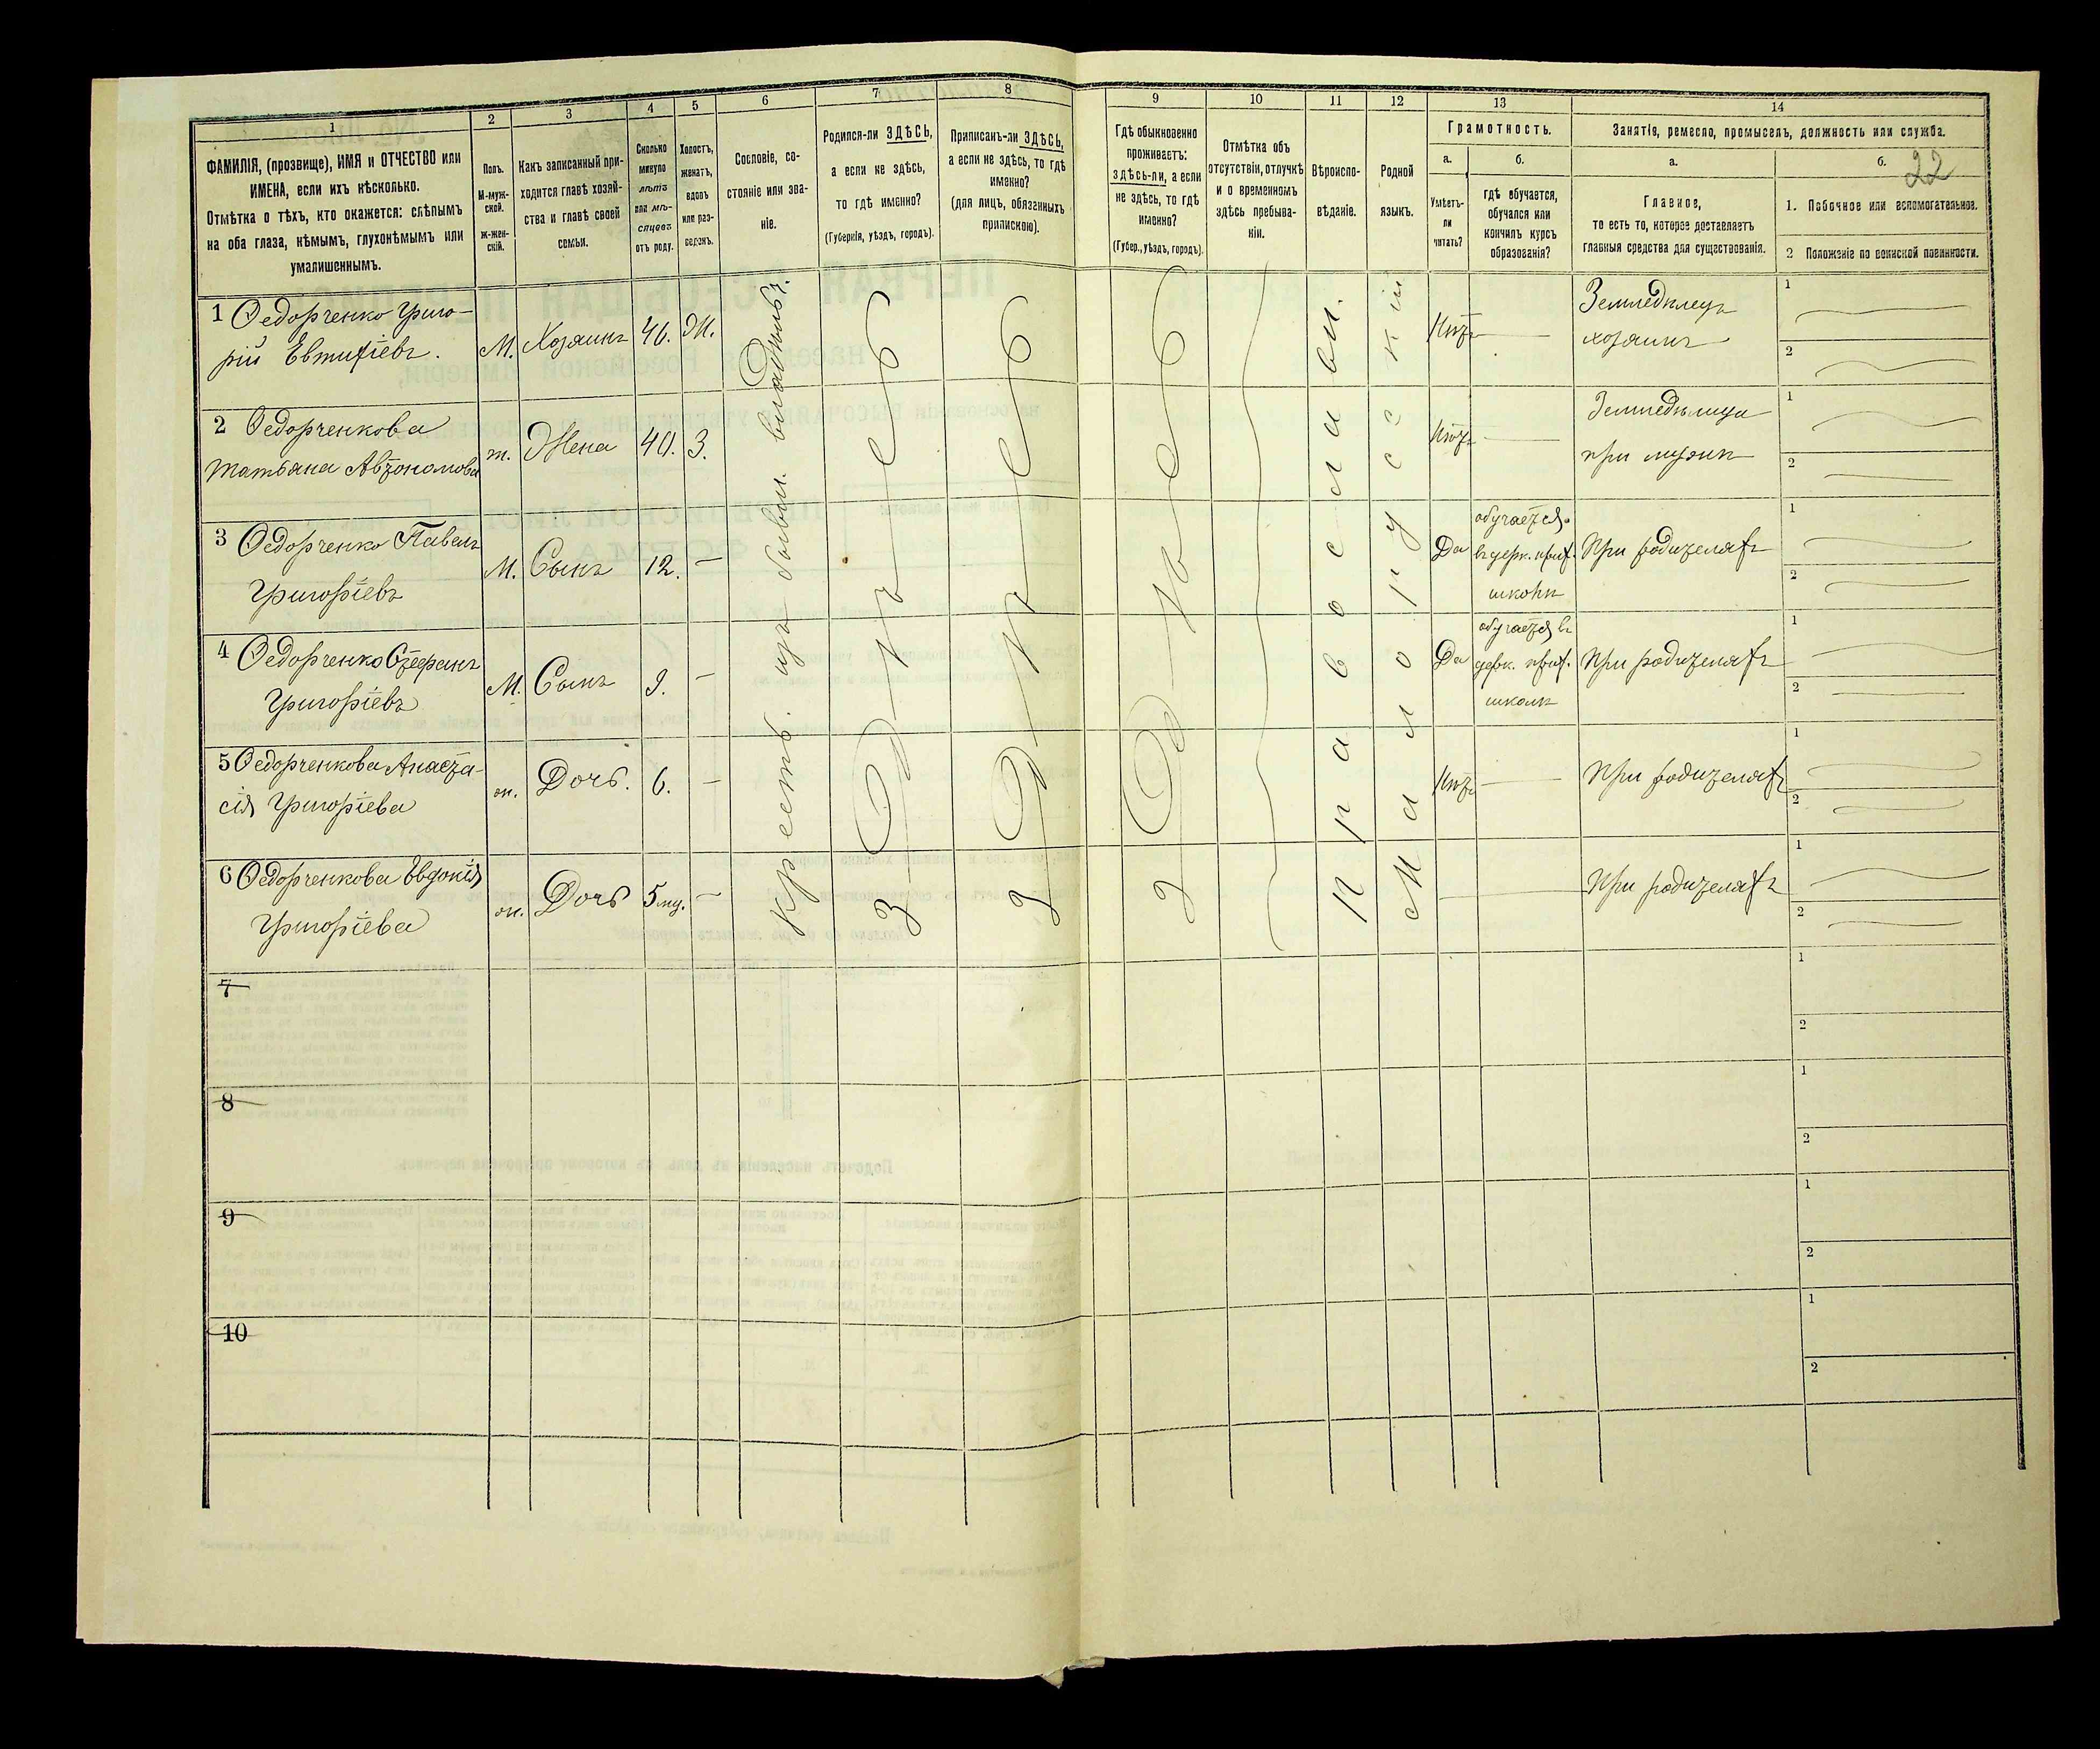 1
ФАМИЛІЯ, (прозвище), ИМЯ и ОТЧЕСТВО или
ИМЕНА, если ихъ нѣсколько.
Отмѣтка о тѣхъ, кто окажется: слѣпымъ
на оба глаза, нѣмымъ, глухонѣмымъ или
умалишеннымъ.
2
Полъ.
М-муж-
ской.
ж-жен-
скій.
3
Какъ записанный при-
ходится главѣ хозяй-
ства и главѣ своей
семьи.
4
Сколько
минуло
лѣтъ
или мѣ-
сяцевъ
отъ роду.
5
Холостъ,
женатъ,
вдовъ
или раз-
веденъ.
6
Сословіе, со-
стояніе или зва-
ніе.
7
Родился-ли ЗДѢСЬ,
а если не здѣсь,
то гдѣ именно?
(Губернія, уѣздъ, городъ).
8
Приписанъ-ли ЗДѢСЬ,
а если не здѣсь, то гдѣ
именно?
(для лицъ, обязанныхъ
припискою).
9
Гдѣ обыкновенно
проживаетъ:
здѣсь-ли, а если
не здѣсь, то гдѣ
именно?
(Губер., уѣздъ, городъ).
10
Отмѣтка объ
отсутствіи, отлучкѣ
и о временномъ
здѣсь пребыва-
ніи.
11
Вѣроиспо-
вѣданіе.
12
Родной
языкъ.
13
Грамотность.
а.
Умѣетъ-
ли
читать?
б.
гдѣ обучается,
обучался или
кончилъ курсъ
образованія?
14
Занятія, ремесло, промыселъ, должность или служба.
а.
Главное,
то есть то, которое доставляетъ
главныя средства для существованія.
б.
22
1. Побочное или вспомогательное.
2 Положеніе по воинской повинности.
1 Ѳедорченко Григо-
рій Евтихіевъ.
М.
Хозяинъ
46.
Ж.
Кресть. изъ бывш. владѣльч.
Здѣсь
Здѣсь
Здѣсь
Православн.
Малорусскій
Нѣтъ
Земледѣлецъ
хозяинъ
1
2
2 Ѳедорченкова
Татьяна Автономова
ж.
Жена
40.
З.
Нѣтъ
Земледѣлица
при мужѣ
1
2
3 Ѳедорченко Павелъ
Григорьевъ
М.
Сынъ
12.
Да
обучается
въ церк. прих.
школѣ
При родителяхъ
1
2
4 Ѳедорченко Стефанъ
Григорьевъ
М.
Сынъ
9.
Да
обучается въ
церк. прих.
школѣ
При родителяхъ
1
2
5 Ѳедорченкова Анаста-
сія Григорьева
ж.
Дочь.
6.
Нѣтъ
При родителяхъ
1
2
6 Ѳедорченкова Евдокія
Григорьева
ж.
Дочь
5 мц.
При родителяхъ
1
2
7
1
2
8
1
2
9
1
2
10
1
2